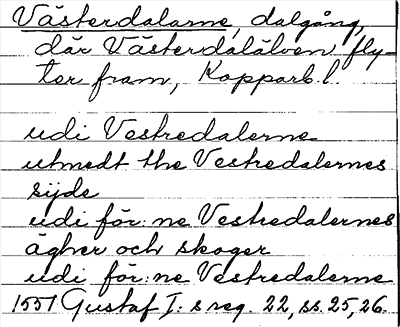 Västerdalarne, dalgång,
där Västerdalälven fly-
ter fram, Kopparb. l.
udi Vestredalerne
utmedt the Vestredalernes
sijde
udi för:ne Vestredalernes
ägher och skoger
udi för:ne Vestredalerne
1551 Gustaf I:s reg. 22, ss. 25, 26.